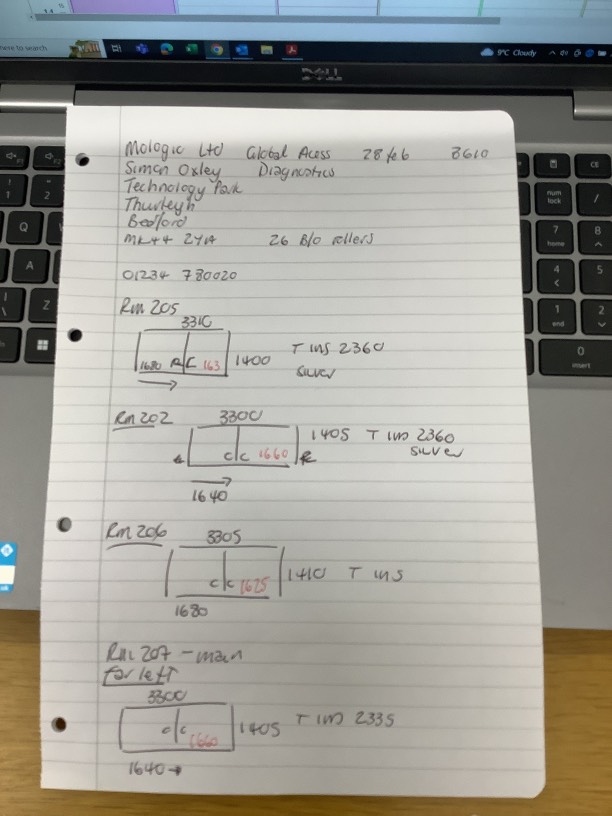 here to search
9°C Cloudy
DELL
Mologic Ltd Global Acess 28 feb 3610
Simon Oxley Diagnostics
Technology Park
Thurleigh
Bedford
MK44 2YA 26 B/O rollers
01234 780020
Rm 205
3310
1680 R/C 163 1400 T ins 2360
silver
Rm 202
3300
c/c 1660 R 1405 T ins 2360
silver
1640
Rm 206
3305
c/c 1625 1410 T ins
1680
Rm 207 - main
far left
3300
c/c 1660 1405 T ins 2335
1640
num lock
7 home
8
4
5
1 end
2
0 insert
Q
A
Z
CE